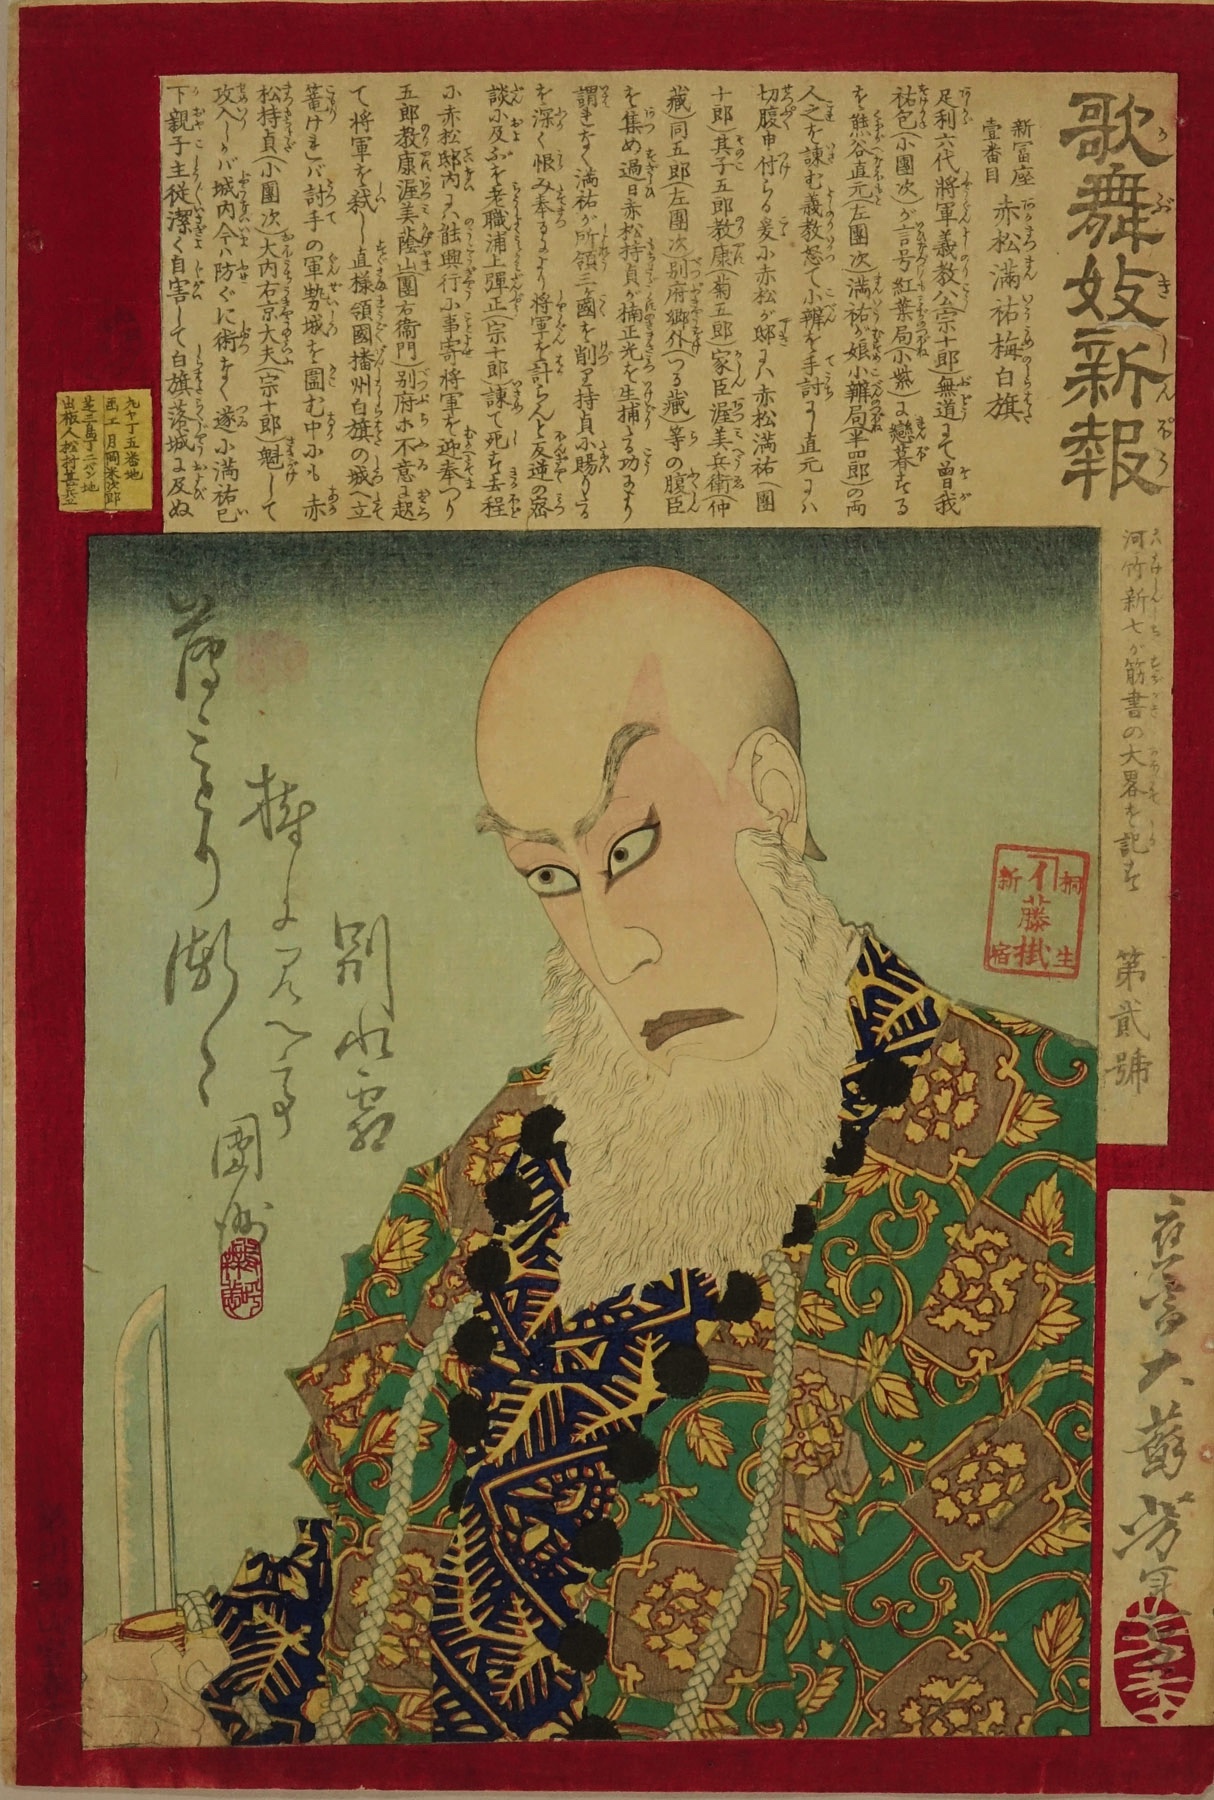 歌舞妓新報
新冨座
壹番目 赤松満祐梅白旗
足利六代將軍義教公(宗十郎)無道にて曽我
祐包(小團次)が言号紅葉局(小紫)に戀暮する
を熊谷直元(左團次)満祐が娘小辨局(半四郎)の両
人之を諌む義教怒て小辨を手討にし直元には
切腹申付らる爰に赤松が邸には赤松満祐(團
十郎)其子五郎教康(菊五郎)家臣渥美兵衛(仲
蔵)同五郎(左團次)別府郷介(つる蔵)等の腹臣
を集め過日赤松持貞が楠正光を生捕たる功により
謂れなく満祐が所領三ヶ國を削り持貞に賜りたる
を深く恨み奉るより将軍を討らんと反逆の密
談に及ぶを老職浦上彈正(宗十郎)諌て死を去程
に赤松邸内には能興行に事寄将軍を迎奉つり
五郎教康渥美蔭山團右衛門別府ホ不意に起
て将軍を弑し直様領國播州白旗の城へ立
篭ければ討手の軍勢城を圍む中にも赤
松持貞(小團次)大内右京大夫(宗十郎)魁して
攻入しが城内今は防ぐに術なく遂に満祐已
下親子主従潔く自害して白旗落城に及ぬ
河竹新七が筋書の大畧を記す
第貳號
桐生
イ藤掛
新宿
別れ霜
持
團洲
應需大蘇芳年
九ヤ丁五番地
画工月岡米次郎
芝三島丁二バン地
出板人松村甚兵エ